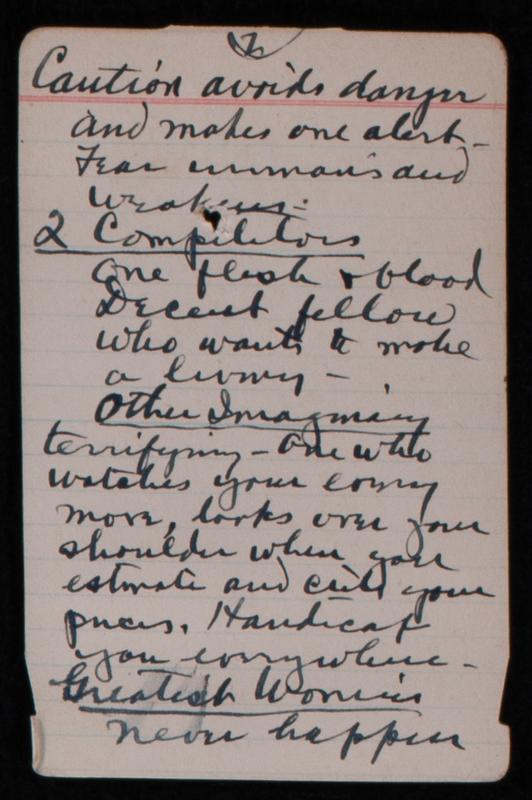 2
Caution avoids danger
and makes one alert -
Fear unmans and
weakens -
2 Competitors
One flesh & blood
Decent fellow
who wants to make
a living -
Other Imaginary
terrifying - One who
watches your every
move, looks over your
shoulder when you
estimate and cuts your
prices. Handicap
you everywhere -
Greatest Worries
never happen